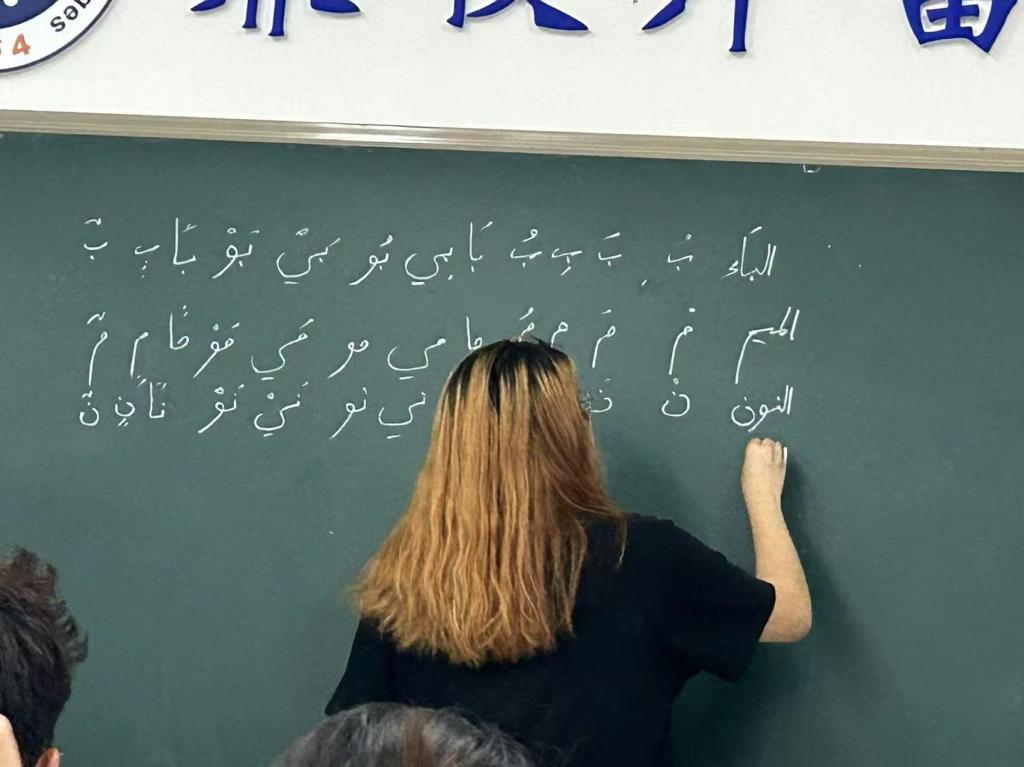 البَاء بْ بَ بِ بُ بَا بِي بُو بَيْ بَوْ بَاً بٍ بٌ
الميم مْ مَ م مُ ما مي مو مَي مَوْ ماً م مٌ
النون نْ نَ ني نو نَيْ نَوْ نَاً نٍ نٌ